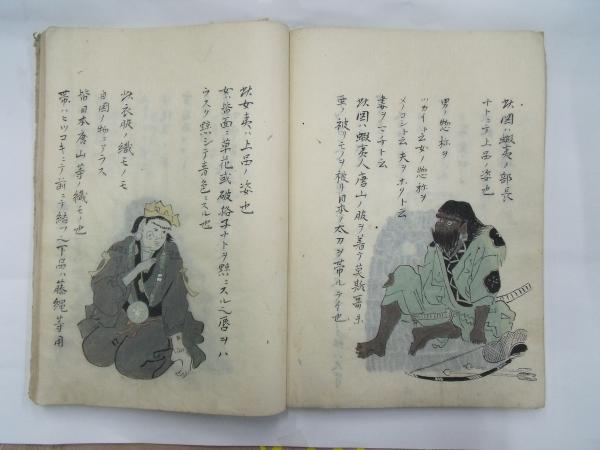 此図ハ蝦夷ノ部長
ナトニテ上品ノ姿也
男ノ惣称ヲ
ツカイト云女ノ惣称ヲ
メノコシト云夫ヲホクト云
妻ヲマチト云
此図ハ蝦夷人唐山ノ服ヲ着テ莫斯哥未
亜ノ被リモノヲ被リ日本ノ太刀ヲ帯ルテイ也
此女夷ハ上品ノ姿也
女ハ皆面ニ草花或破格子ナトヲ黥ニスル之唇ヲハ
ウスク黥シテ青色ニスル也
此衣服ノ織モノモ
自国ノ物ニアラス
皆日本唐山等ノ織モノ也
帯ハヒツコキニテ前ニテ結ツ之下品ハ藤縄等用